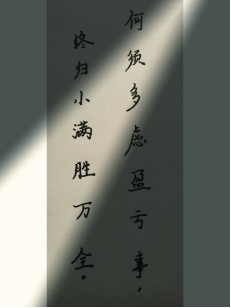 何须多虑盈亏事，
终归小满胜万全。